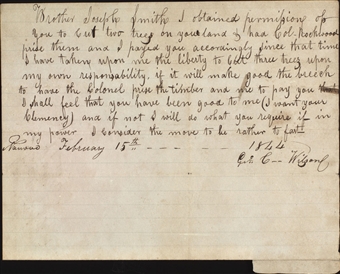 Brother Joseph Smith I obtained permission of
you to cut two trees on your land & had Col. Rockwood
prise them and I payed you accordingly since that time
I have taken upon me the liberty to cut three trees upon
my own responsibility. if it will make good the breech
to have the Colonel prise the timber and me to pay you that
I shall feel that you have been good to me (I want your
Clemency) and if not I will do what you require if in
my power I consider the move to be rather to fast
Nauvoo February 15th - - - - - - 1844
C-- Wilson